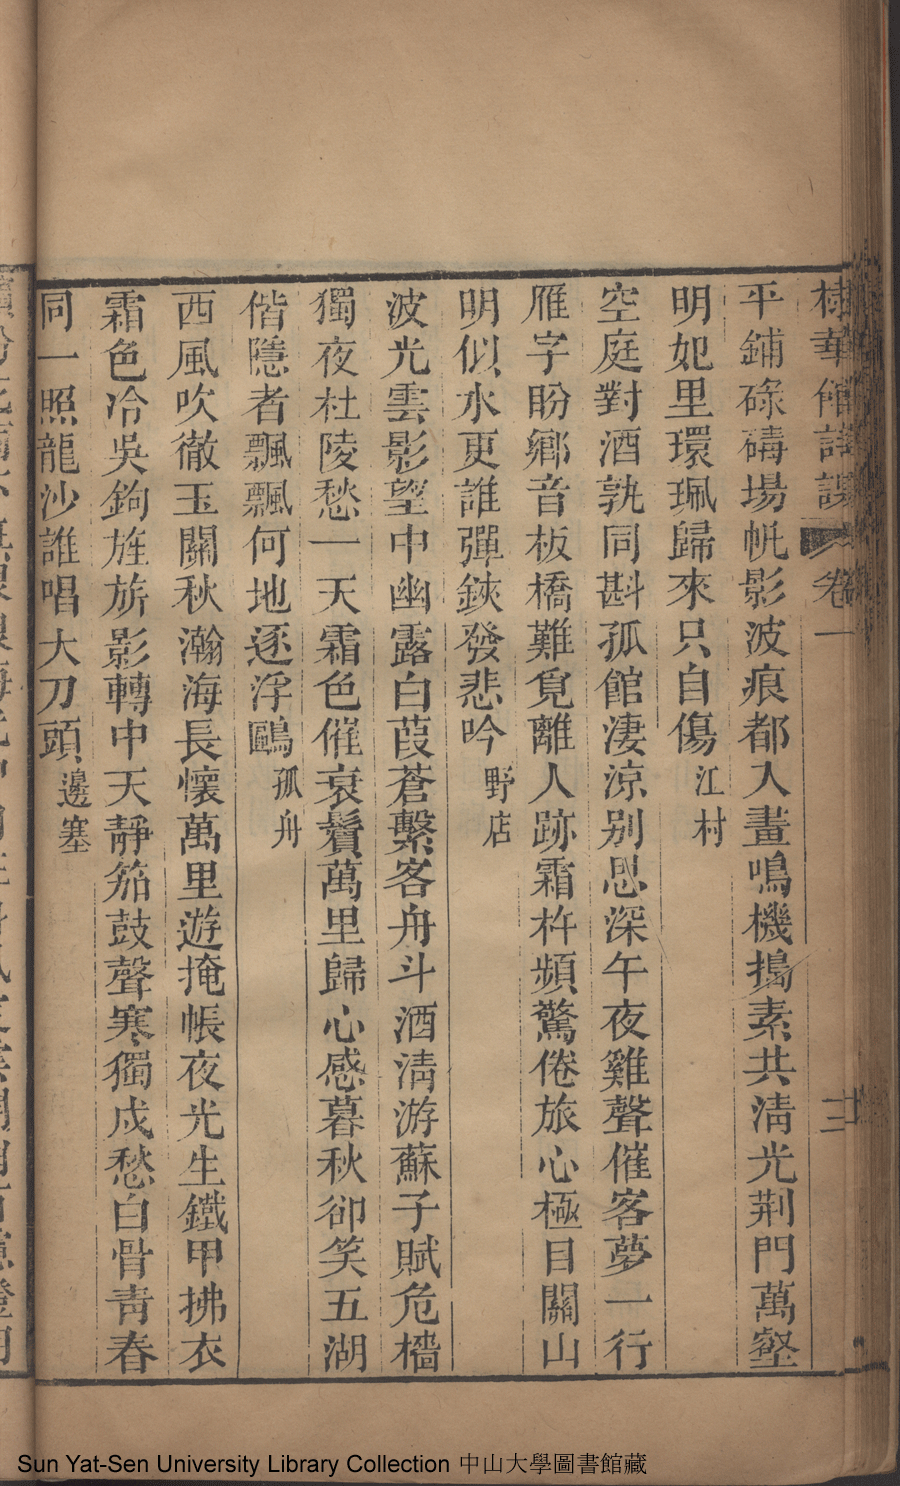 棣華館詩課 卷一 十三
平鋪碌碡場帆影波痕都入畫鳴機搗素共清光荆門萬壑
明妃里環珮歸來只自傷 江村
空庭對酒孰同斟孤館淒涼別思深午夜雞聲催客夢一行
雁字盼鄉音板橋難覓離人跡霜杵頻驚倦旅心極目關山
明似水更誰彈鋏發悲吟 野店
波光雲影望中幽露白葭蒼繫客舟斗酒清游蘇子賦危檣
獨夜杜陵愁一天霜色催衰鬢萬里歸心感暮秋卻笑五湖
偕隱者飄飄何地逐浮鷗 孤舟
西風吹徹玉關秋瀚海長懷萬里遊掩帳夜光生鐵甲拂衣
霜色冷吳鉤旌旂影轉中天靜笳鼓聲寒獨戍愁白骨青春
同一照龍沙誰唱大刀頭 邊塞
Sun Yat-Sen University Library Collection 中山大學圖書館藏